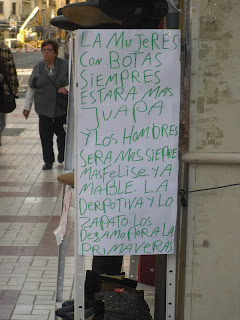 LA MUJERES
CON BOTAS
SIEMPRES
ESTARA MAS
JUAPA
Y LOS HOMBRES
SERA MAS SIEPRE
MAS FELISE Y A
MABLE LA
DERPOTIVA Y LO
ZAPATO LOS
DEGAMO PARA LA
PRIMAVERAS